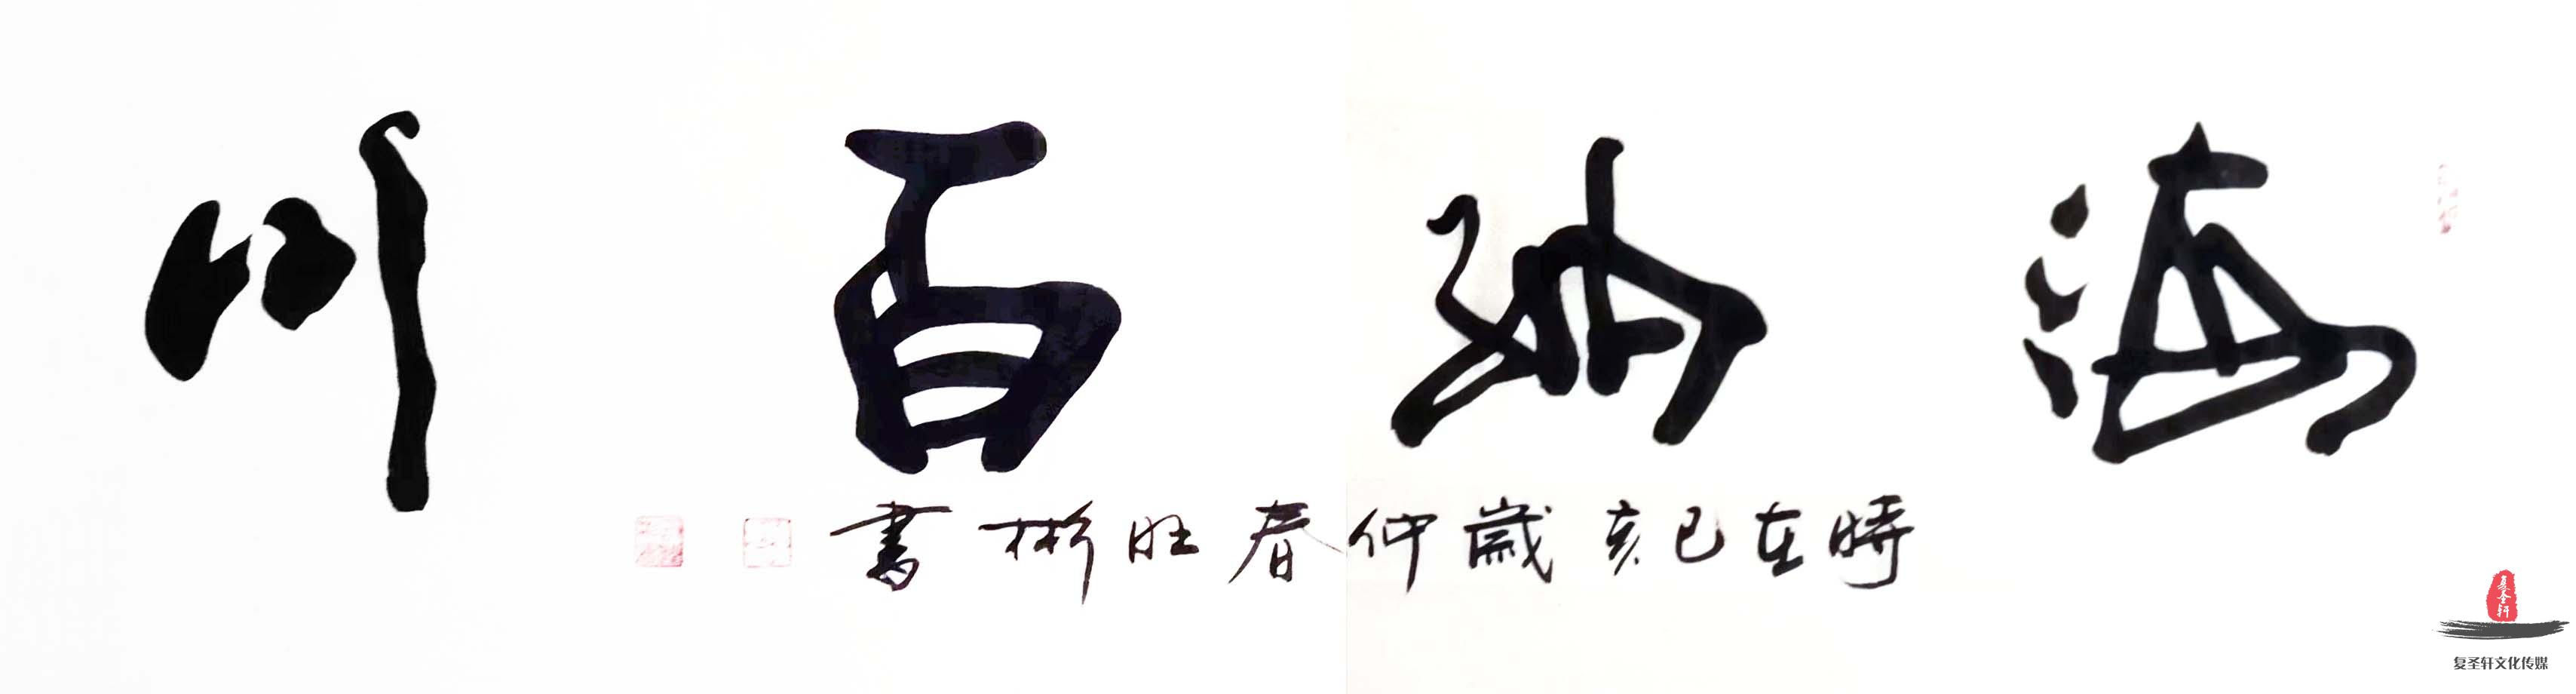 海纳百川
時在己亥歲仲春旺彬書
复圣轩
复圣轩文化传媒